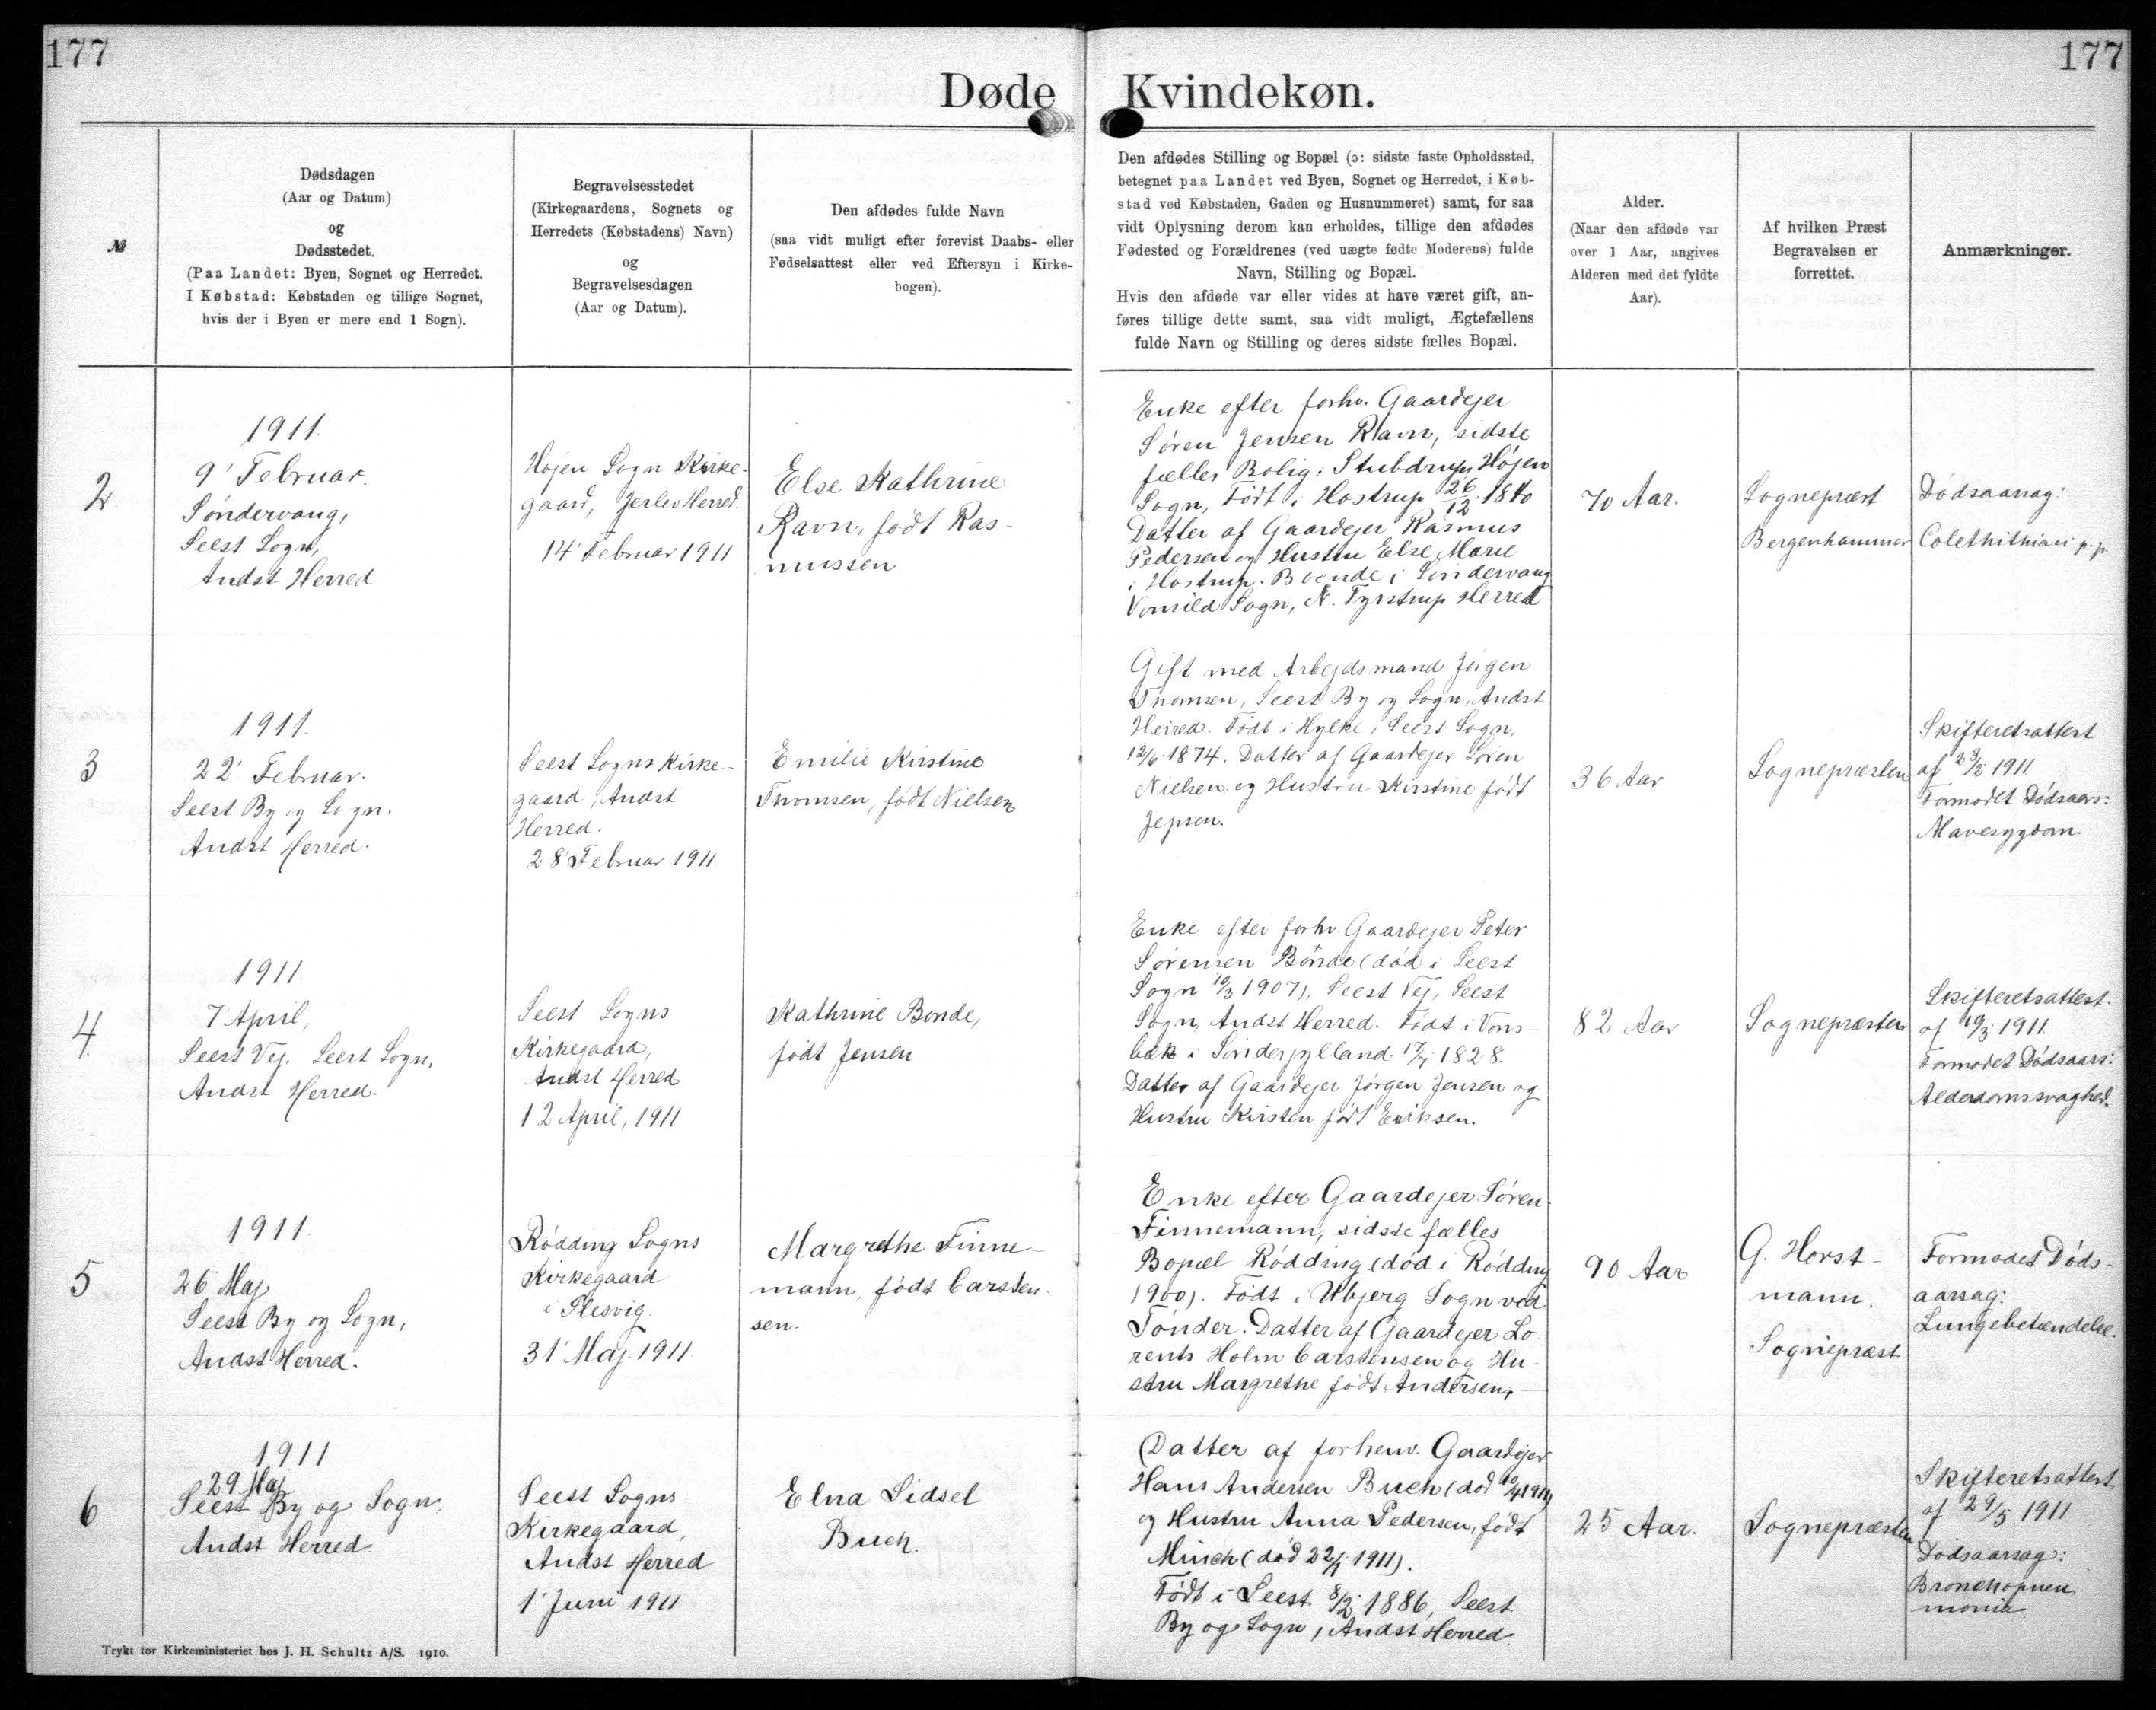 177
177
Døde
Kvindekøn.
№
Dødsdagen
(Aar og Datum)
og
Dødsstedet.
(Paa Landet: Byen, Sognet og Herredet.
I Købstad: Købstaden og tillige Sognet,
hvis der i Byen er mere end 1 Sogn).
Begravelsesstedet
(Kirkegaardens, Sognets og
Herredets (Købstadens) Navn)
og
Begravelsesdagen
(Aar og Datum).
Den afdødes fulde Navn
(saa vidt muligt efter forevist Daabs- eller
Fødselsattest eller ved Eftersyn i Kirke-
bogen).
Den afdødes Stilling og Bopæl (ɔ: sidste faste Opholdssted,
betegnet paa Landet ved Byen, Sognet og Herredet, i Køb-
stad ved Købstaden, Gaden og Husnummeret) samt, for saa
vidt Oplysning derom kan erholdes, tillige den afdødes
Fødested og Forældrenes (ved uægte fødte Moderens) fulde
Navn, Stilling og Bopæl.
Hvis den afdøde var eller vides at have været gift, an-
føres tillige dette samt, saa vidt muligt, Ægtefællens
fulde Navn og Stilling og deres sidste fælles Bopæl.
Alder.
(Naar den afdøde var
over 1 Aar, angives
Alderen med det fyldte
Aar).
Af hvilken Præst
Begravelsen er
forrettet.
Anmærkninger.
2
1911.
9' Februar.
Søndervang,
Seest Sogn,
Andst Herred
Højen Sogn Kirke-
gaard, Jerlev Herred.
14' Februar 1911
Else Kathrine
Ravn, født Ras-
mussen
Enke efter forhv. Gaardejer
Søren Jensen Ravn, sidste
fælles Bolig: Stubdrup, Højen
Sogn, Født i Hostrup 26/12 1840
Datter af Gaardejer Rasmus
Pedersen og Hustru Else Marie
i Hostrup. Boende i Søndervang
Vonsild Sogn, N. Tyrstrup Herred
70 Aar.
Sognepræst
Bergenhammer
Dødsaarsag:
p. p.
3
1911.
22' Februar.
Seest By og Sogn.
Andst Herred.
Seest Sogns Kirke-
gaard, Andst
Herred.
28' Februar 1911
Emilie Kirstine
Thomsen, født Nielsen
Gift med Arbejdsmand Jørgen
Thomsen, Seest By og Sogn, Andst
Herred. Født i Hylke, Seest Sogn,
12/6 1874. Datter af Gaardejer Søren
Nielsen og Hustru Kirstine født
Jepsen.
36 Aar
Sognepræsten
Skifteretsattest
af 23/2 1911
Formodet Dødsaars:
Mavesygdom.
4
1911
7 April,
Seest Vej. Seest Sogn,
Andst Herred.
Seest Sogns
Kirkegaard,
Andst Herred
12 April, 1911
Kathrine Bonde,
født Jensen
Enke efter forhv. Gaardejer Peter
Sørensen Bonde (død i Seest
Sogn 10/3 1907), Seest Vej, Seest
Sogn, Andst Herred. Født i Vons-
bæk i Sønderjylland 1828.
Datter af Gaardejer Jørgen Jensen og
Hustru Kirsten født Eriksen.
82 Aar
Sognepræsten
Skifteretsattest
af 1911.
Formodet Dødsaars:
Alderdomssvaghed.
5
1911.
26' Maj
Seest By og Sogn,
Andst Herred.
Rødding Sogns
Kirkegaard
i Slesvig.
31' Maj 1911.
Margrethe Finne-
mann, født Carsten-
sen.
Enke efter Gaardejer Søren
Finnemann, sidste fælles
Bopæl Rødding (død i Rødding
1900). Født i Ubjerg Sogn ved
Tønder. Datter af Gaardejer Lo-
rents Holm Carstensen og Hu-
stru Margrethe født Andersen,
90 Aar
G. Horst-
mann.
Sognepræst
Formodet Døds-
aarsag:
Lungebetændelse.
6
1911
29 Maj
Seest By og Sogn,
Andst Herred.
Seest Sogns
Kirkegaard,
Andst Herred
1' Juni 1911
Elna Sidsel
Buch.
Datter af forhenv. Gaardejer
Hans Andersen Buch (død
og Hustru Anna Pedersen, født
Münch (død 22/1 1911).
Født i Seest 8/2 1886, Seest
By og Sogn, Andst Herred.
25 Aar.
Sognepræsten
Skifteretsattest
af 29/5 1911
Dødsaarsag:
Bronchopneu
monia
Trykt for Kirkeministeriet hos J. H. Schultz A/S. 1910.